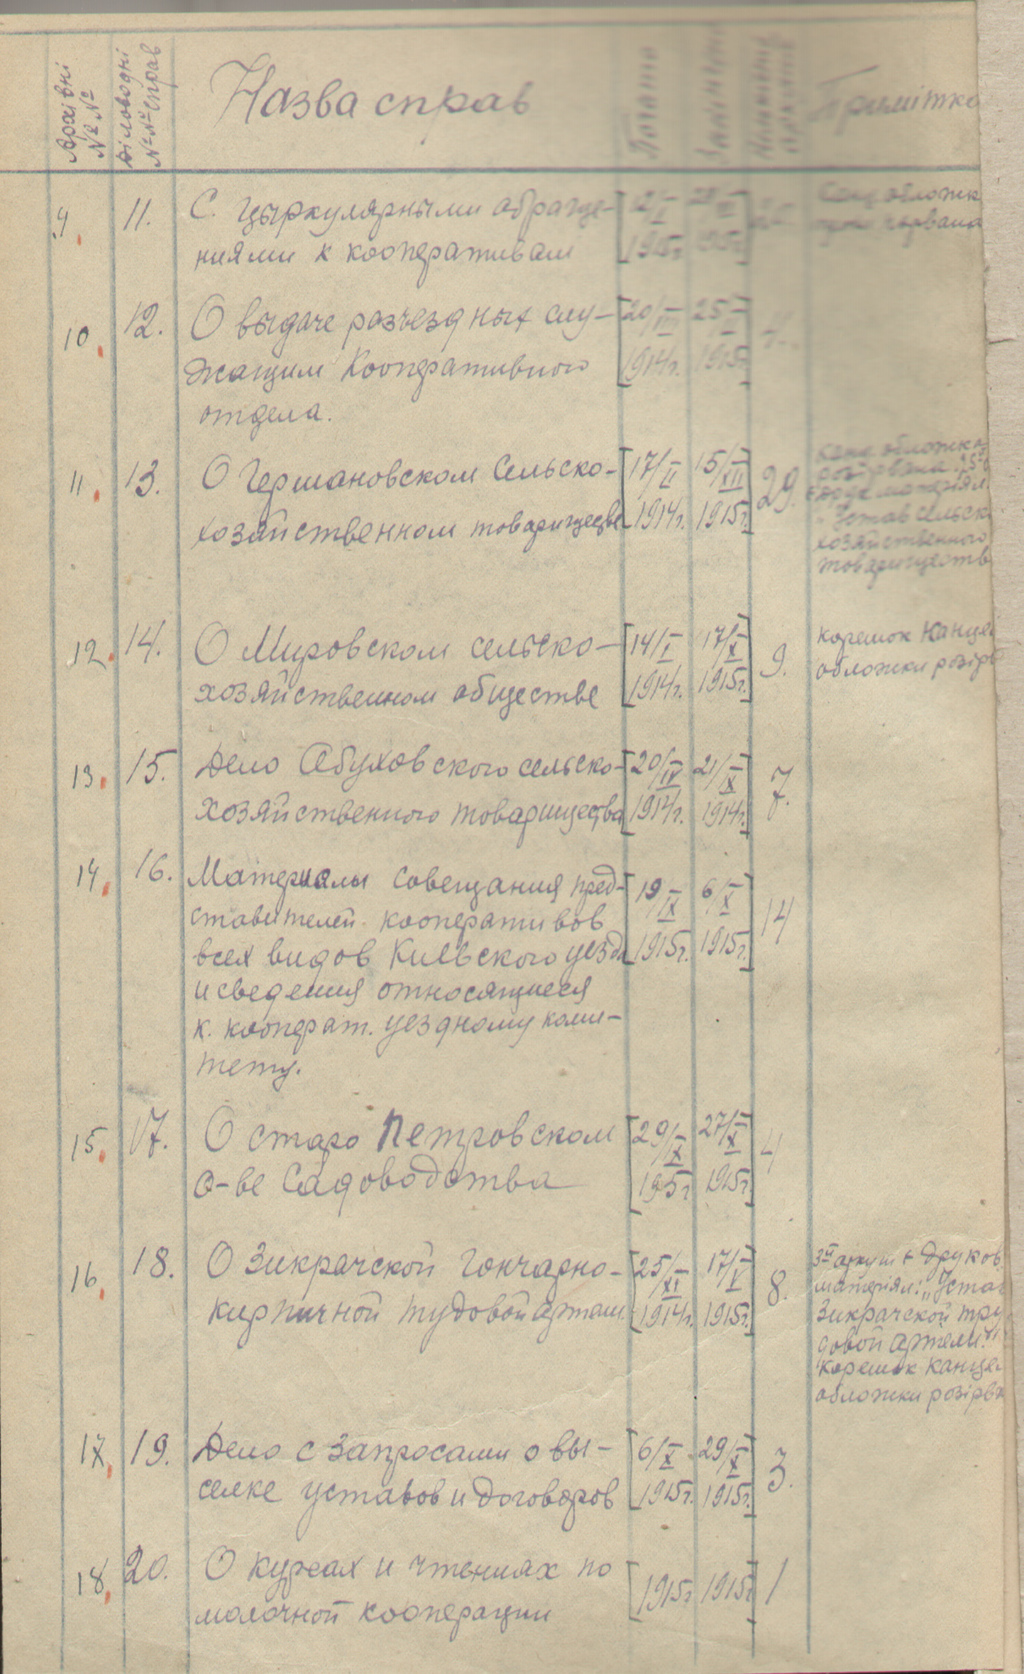 Архівні №№
Діловодні №№ справ
Назва справ
Почато
Примітка
9.
11.
С. цыркулярными обраще-
ниями к кооперативам
12/I
1915г.
1915г.
10.
12.
О выдаче разъездных слу-
жащим Кооперативного
отдела.
20/III
1914г.
25/I
1915г.
11.
13.
О Германовском Сельско-
хозяйственном товариществе
17/II
1914г.
15/XII
1915г.
29.
Канц обложка
розірвана.
матеріял
Устав сельск
хозяйственного
товариществ
12.
14.
О Мировском сельско-
хозяйственном обществе
14/I
1914г.
17/X
1915г.
9.
Корешок Канце
обложки розірв
13.
15.
Дело Абуховского сельско-
хозяйственного товарищества
20/IV
1914г.
21/X
1914г.
7.
14.
16.
Материалы совещания пред-
ставителей кооперативов
всех видов Киевского уезда
и сведения относящиеся
к. кооперат. уездному коми-
тету.
19/IX
1915г.
6/X
1915г.
14
15.
17.
О старо Петровском
о-ве Садоводства
29/IX
1915г
27/X
1915г.
4
16.
18.
О Зикрачской гончарно-
кирпичной тудовой артели
25/XI
1914г.
17/V
1915г.
8.
3й аркуш + друков.
матеріял: „Устав
Зикрачской тру
довой артели."
Корешок канце
обложки розірва
17.
19.
Дело с запросами о вы-
селке уставов и договоров
6/X
1915г.
29/X
1915г.
3.
18.
20.
О курсах и чтениях по
молочной кооперации
1915г
1915г
1